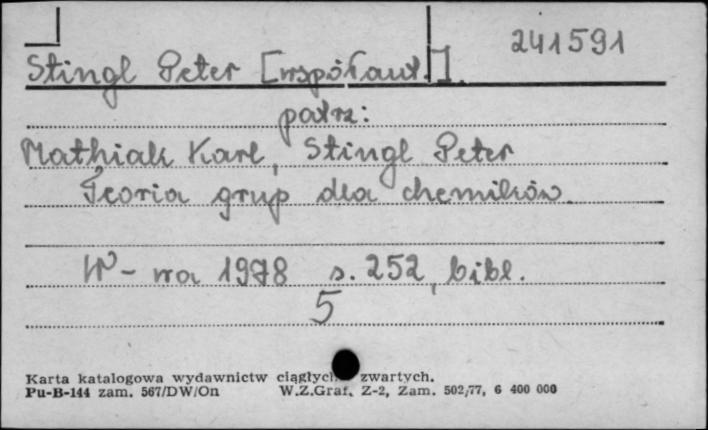 241591
Stingl Peter [współaut.].
patrz:
Mathiak Karl, Stingl Peter
Teoria grup dla chemików.
W-wa 1978 s. 252, bibl.
5
Karta katalogowa wydawnictw ciągłych zwartych.
Pu-B-144 zam. 567/DW/On W.Z.Graf. Z-2, Zam. 502/77, 6 400 000